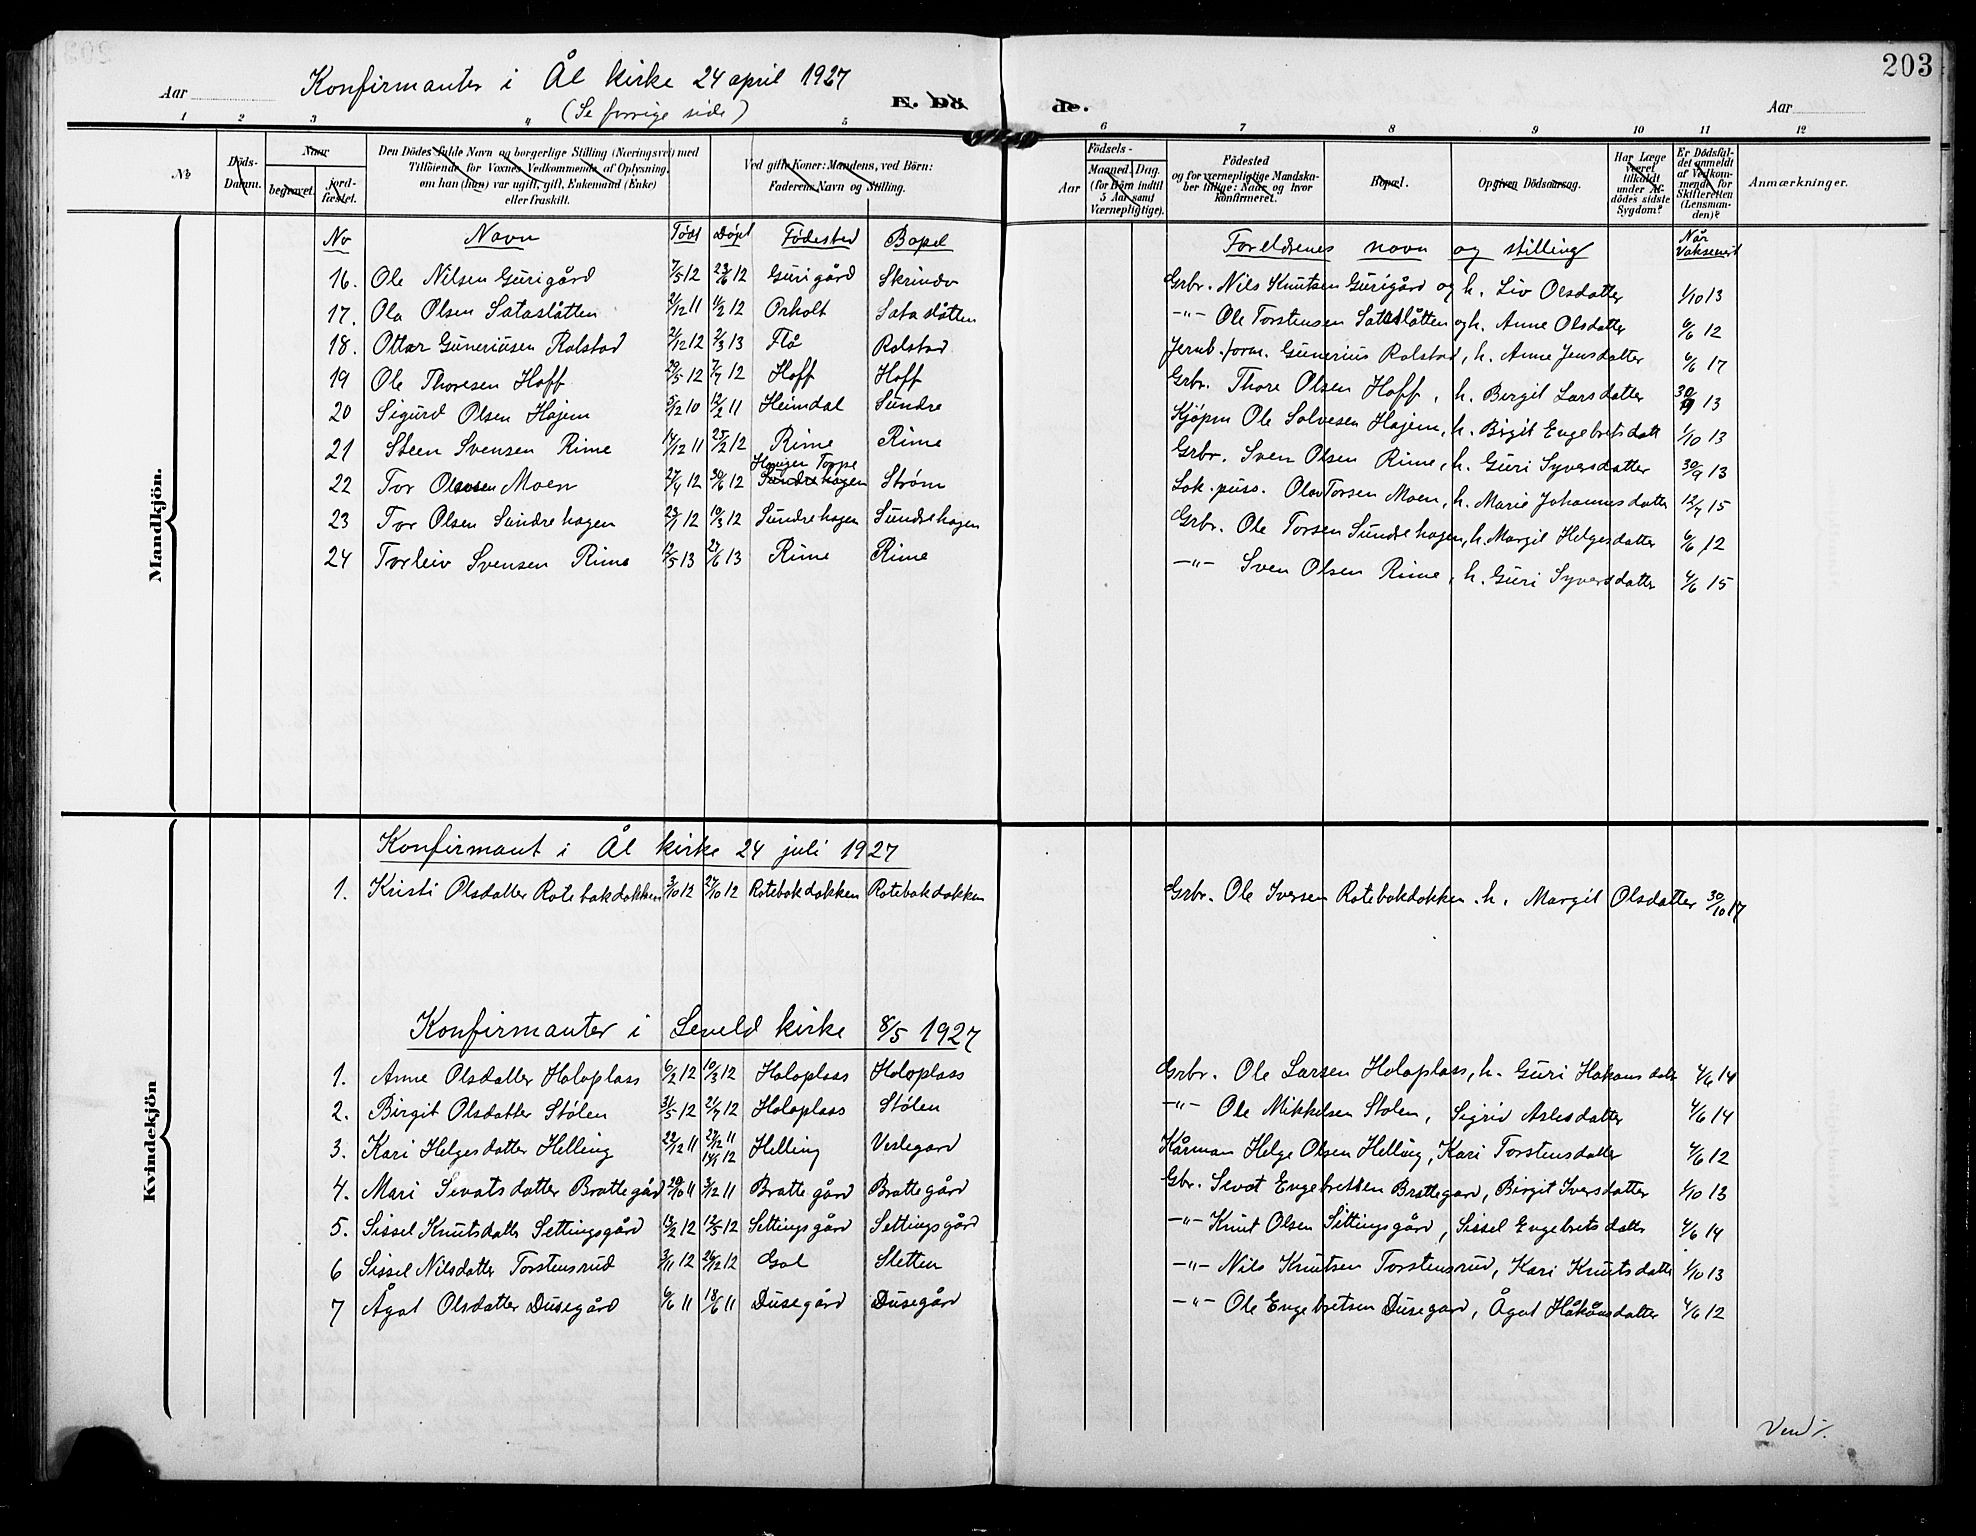 203
Konfirmanter i Ål kirke 24 april 1927
(Se forrige side)
Aar
E. Dö de.
Aar
1 2 3 4 5 6 7 8 9 10 11 12
No
Döds-Datum.
Naar
begravet.
jord-fæstet.
Den Dödes fulde Navn og borgerlige Stilling (Næringsvei) med
Tilföiende for Voxnes Vedkommende af Oplysning,
om han (hun) var ugift, gift, Enkemand (Enke)
eller fraskilt.
Ved gifte Koner: Mandens, ved Börn:
Faderens Navn og Stilling.
Födsels-
Aar
Maaned. Dag.
(for Börn indtil
5 Aar samt
Værnepligtige).
Födested
og for værnepligtige Mandska-
ber tillige: Naar og hvor
konfirmeret.
Bopæl.
Opgiven Dödsaarsag.
Har Læge
været
tilkaldt
under Af-
dödes sidste
Sygdom?
Er Dödsfal-
det anmeldt
af Vedkom-
mende for
Skifteretten
(Lensman-
den)?
Anmærkninger.
Mandkjön.
No Navn Født Døpt Fødested Bopel Foreldrenes navn og stilling Når Vaksinert
16. Ole Nilsen Gurigård 7/5 12 23/6 12 Gurigård Skrindo Grbr. Nils Knutsen Gurigård og h. Liv Olsdatter 1/10 13
17. Ola Olsen Sataslåtten 21/12 11 11/2 12 Opholt Sataslåtten -"- Ole Torstensen Sataslåtten og h. Anne Olsdatter 6/6 12
18. Ottar Guneriusen Rolstad 21/12 12 2/3 13 Flå Rolstad Jernb. form. Gunerius Rolstad, h. Anne Jensdatter 6/6 17
19 Ole Thoresen Hoff 29/5 12 7/7 12 Hoff Hoff Grbr. Thore Olsen Hoff, h. Birgit Larsdatter 30/9 13
20 Sigurd Olsen Hajem 5/12 10 12/2 11 Heimdal Sundre Kjøpm Ole Solvesen Hajem, h. Birgit Engebretsdatt 1/10 13
21 Steen Svensen Rime 14/12 11 25/2 12 Rime Rime Grbr. Sven Olsen Rime, h. Guri Syversdatter 30/9 13
22 Tor Olavsen Moen 27/4 12 30/6 12 Haugen Torpe Sundrehagen Strøm Lok. puss. Olav Torsen Moen, h. Marie Johannesdatter 12/7 15
23 Tor Olsen Sundrehagen 23/1 12 10/3 12 Sundrehagen Sundrehagen Grbr. Ole Torsen Sundrehagen, h. Margit Helgesdatter 6/6 12
24 Torleiv Svensen Rime 12/5 13 27/6 13 Rime Rime -"- Sven Olsen Rime, h. Guri Syversdatter 4/6 15
Kvindekjön
Konfirmant i Ål kirke 24 juli 1927
1. Kristi Olsdatter Rotebakdokken 3/10 12 27/10 12 Rotebakdokken Rotebakdokken Grbr. Ole Iversen Rotebakdokken. h. Margit Olsdatter 30/10 17
Konfirmanter i Leveld kirke 8/5 1927
1. Anne Olsdatter Holoplass 6/2 12 10/3 12 Holoplass Holoplass Grbr. Ole Larsen Holoplass, h. Guri Hakansdatt 4/6 14
2. Birgit Olsdatter Stølen 31/5 12 21/7 12 Holoplass Stølen -"- Ole Mikkelsen Stolen, Sigrid Aslesdatter 4/6 14
3. Kari Helgesdatter Helling 22/12 11 27/12 11 14/4 12 Helling Veslegard Kårman Helge Olsen Helling, Kari Torstensdatter 4/6 12
4. Mari Sevatsdatter Brattegård 29/10 11 3/12 11 Brattegård Brattegård Gbr. Sevat Engebretsen Brattegard, Birgit Iversdatter 1/10 13
5. Sissel Knutsdatter Settingsgård 13/2 12 12/5 12 Settingsgård Settingsgård -"- Knut Olsen Sittingsgård, Sissel Engebretsdatter 4/6 14
6 Sissel Nilsdatter Torstensrud 3/11 12 26/12 12 Gol Sletten -"- Nils Knutsen Torstensrud, Kari Knutsdatter 1/10 13
7 Ågot Olsdatter Dusegård 6/6 11 18/6 11 Dusegård Dusegård -"- Ole Engebretsen Dusegard, Ågot Håkånsdatter 4/6 12
Vend %.